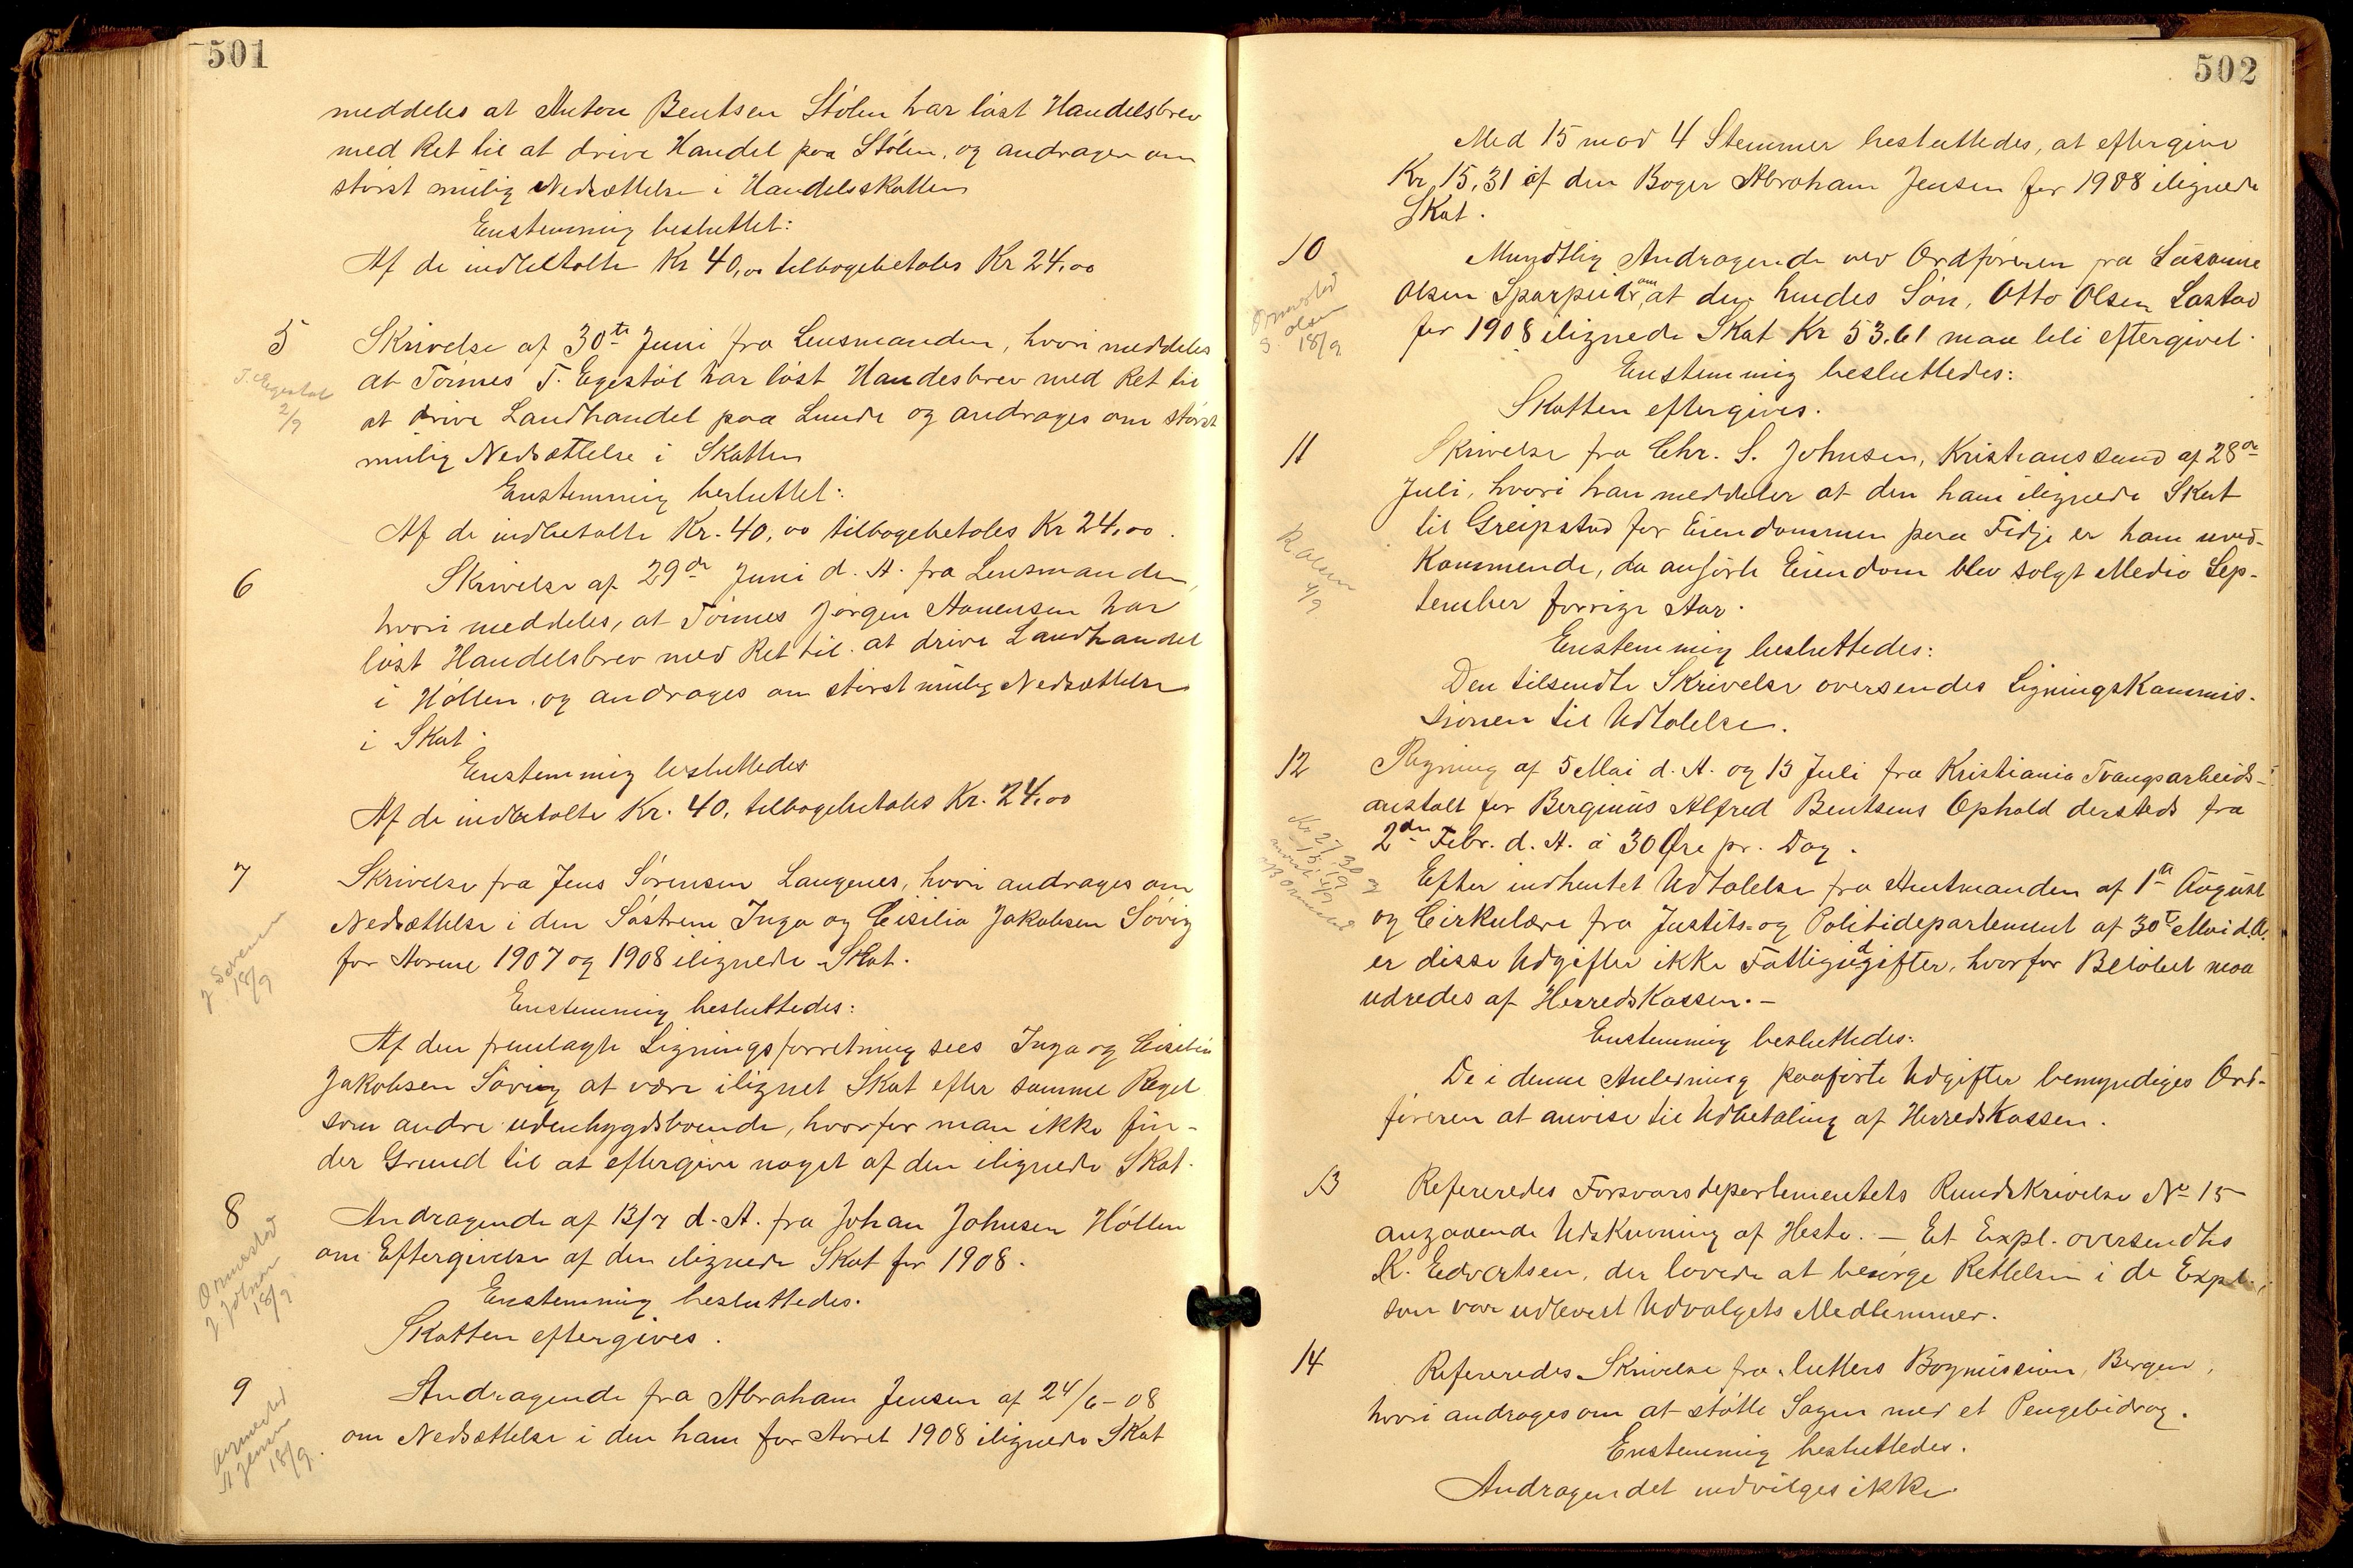 501
meddeles at Anton Bentsen Stølen har løst Handelsbrev
med Ret til at drive Handel paa Stølen, og andrager om
størst mulig Nedsættelse i Handelsskatten
Enstemmig besluttet:
Af de indbetalte Kr 40,00 tilbagebetales Kr 24,00
5 Skrivelse af 30te Juni fra Lensmanden, hvori meddeles
at Tønnes T. Egestøl har løst Handesbrev med Ret til
at drive Landhandel paa Lunde og andrages om størst
mulig Nedsættelse i Skatten
T. Egestøl
2/9
Enstemmig besluttet:
Af de indbetalte Kr. 40,00 tilbagebetales Kr 24,00.
6 Skrivelse af 29de Juni d. A. fra Lensmanden,
hvori meddeles, at Tønnes Jørgen Aanensen har
løst Handelsbrev med Ret til at drive Landhandel
i Høllen, og andrages om størst mulig Nedsættelse
i Skat.
Enstemmig besluttedes
Af de indbetalte Kr. 40, tilbagebetales Kr. 24,00
7 Skrivelse fra Jens Sørensen Langenes, hvori andrages om
Nedsættelse i den Søstrene Inga og Cisilia Jakobsen Søvig
for Aarene 1907 og 1908 ilignede Skat.
J Sørensen
18/9
Enstemmig besluttedes:
Af den fremlagte Ligningsforretning sees Inga og Cisilia
Jakobsen Søvig at være ilignet Skat efter samme Regel
som andre udenbygdsboende, hvorfor man ikke fin-
der Grund til at eftergive noget af den ilignede Skat.
8 Andragende af 13/7 d. A. fra Johan Johnsen Høllen
om Eftergivelse af den ilignede Skat for 1908.
Ormestad
J Johnsen
18/9
Enstemmig besluttedes.
Skatten eftergives.
9 Andragende fra Abraham Jensen af 24/6-08
om Nedsættelse i den ham for Aaret 1908 ilignede Skat
Ormestad
A Jensen
18/9.
502
Med 15 mod 4 Stemmer besluttedes, at eftergive
Kr 15,31 af den Boger Abraham Jensen for 1908 ilignede
Skat.
10 Mundtlig Andragende ved Ordføreren fra Susanne
Olsen om, at den hendes Søn, Otto Olsen Lastad
for 1908 ilignede Skat Kr 53.61 maa bli eftergivet.
Ormestad
S. Olsen
18/9
Enstemmig besluttedes:
Skatten eftergives.
11 Skrivelse fra Chr. S. Johnsen, Kristianssund af 28de
Juli, hvori han meddeler at den ham ilignede Skat
til Greipstad for Eiendommen paa Fidje er ham uved-
kommende, da anførte Eiendom blev solgt Medio Sep-
tember forrige Aar.
Enstemmig besluttedes:
Den tilsendte Skrivelse oversendes Ligningskommis-
sionen til Udtalelse.
12 Regning af 5 Mai d. A. og 13 Juli fra Kristiania Tvangsarbeids-
anstalt for Berginius Alfred Bentsens Ophold dersteds fra
2den Febr. d. A. à 30 Øre pr. Dag.
Kr 27,30 og
Efter indhentet Udtalelse fra Amtmanden af 1ste August
og Cirkulære fra Justits- og Politidepartement af 30te Mai d. A.
er disse Udgifter ikke Fattigudgifter, hvorfor Beløbet maa
udredes af Herredskassen. —
Enstemmig besluttedes:
De i denne Anledning paaførte Udgifter bemyndiges Ord-
føreren at anvise til Udbetaling af Herredskassen.
13 Refereredes Forsvarsdepartementets Rundskrivelse No 15
angaaende Udskrivning af Heste. — Et Expl. oversendtes
K. Edvertsen, der lovede at besørge Rettelsen i de Expl.,
som var udlevert Udvalgets Medlemmer.
14 Refereredes Skrivelse fra Lutters Bogmission, Bergen,
hvori andrages om at støtte Sagen med et Pengebidrag.
Enstemmig besluttedes.
Andragendet indvilges ikke.